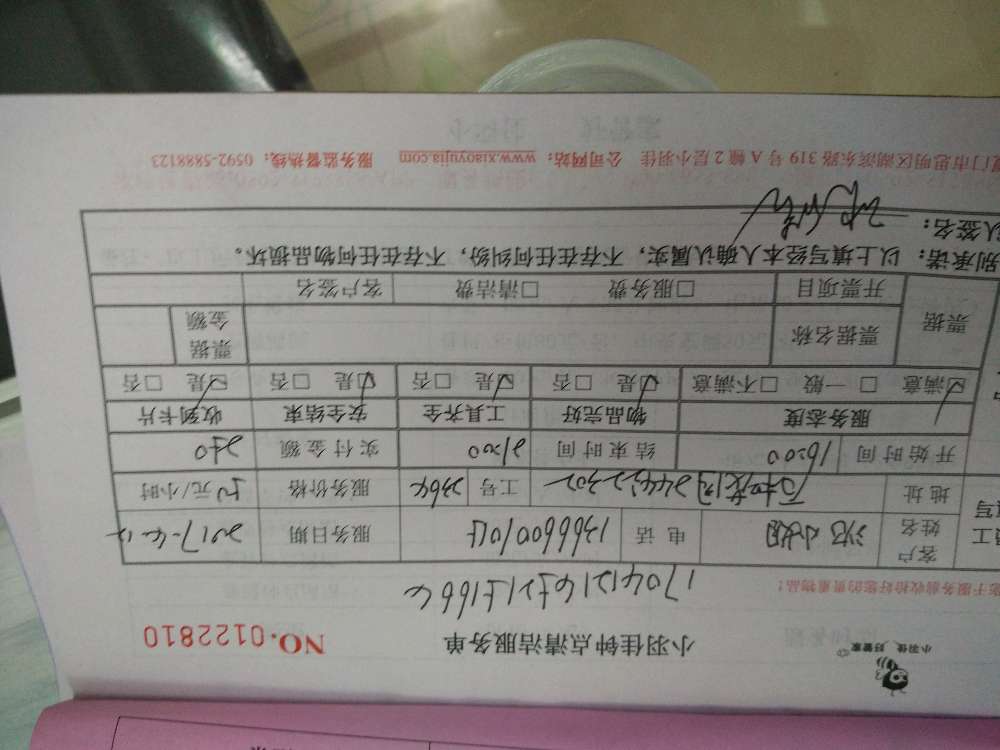 小羽佳、好管家
小羽佳钟点清洁服务单
NO.0122810
能于服务前收拾好您的重物品!
客户姓名 电话 服务日期 2017-4-12
地址 工号 2364 服务价格 50元/小时
开始时间 16:00 结束时间 21:00 实付金额 250
服务态度 物品完好 工具齐全 安全结束 收到卡片
☑满意 □一般 □不满意 ☑是 □否 ☑是 □否 ☑是 □否 ☑是 □否
票据 票据名称 票据金额
开票项目 □服务费 □清洁费 客户签名
别承诺:以上填写经本人确认属实,不存在任何纠纷,不存在任何物品损坏。
认签名:
门市思明区湖滨东路319号A幢2层小羽佳 公司网站:www.xiaoyujia.com 服务监督热线:0592-5888123